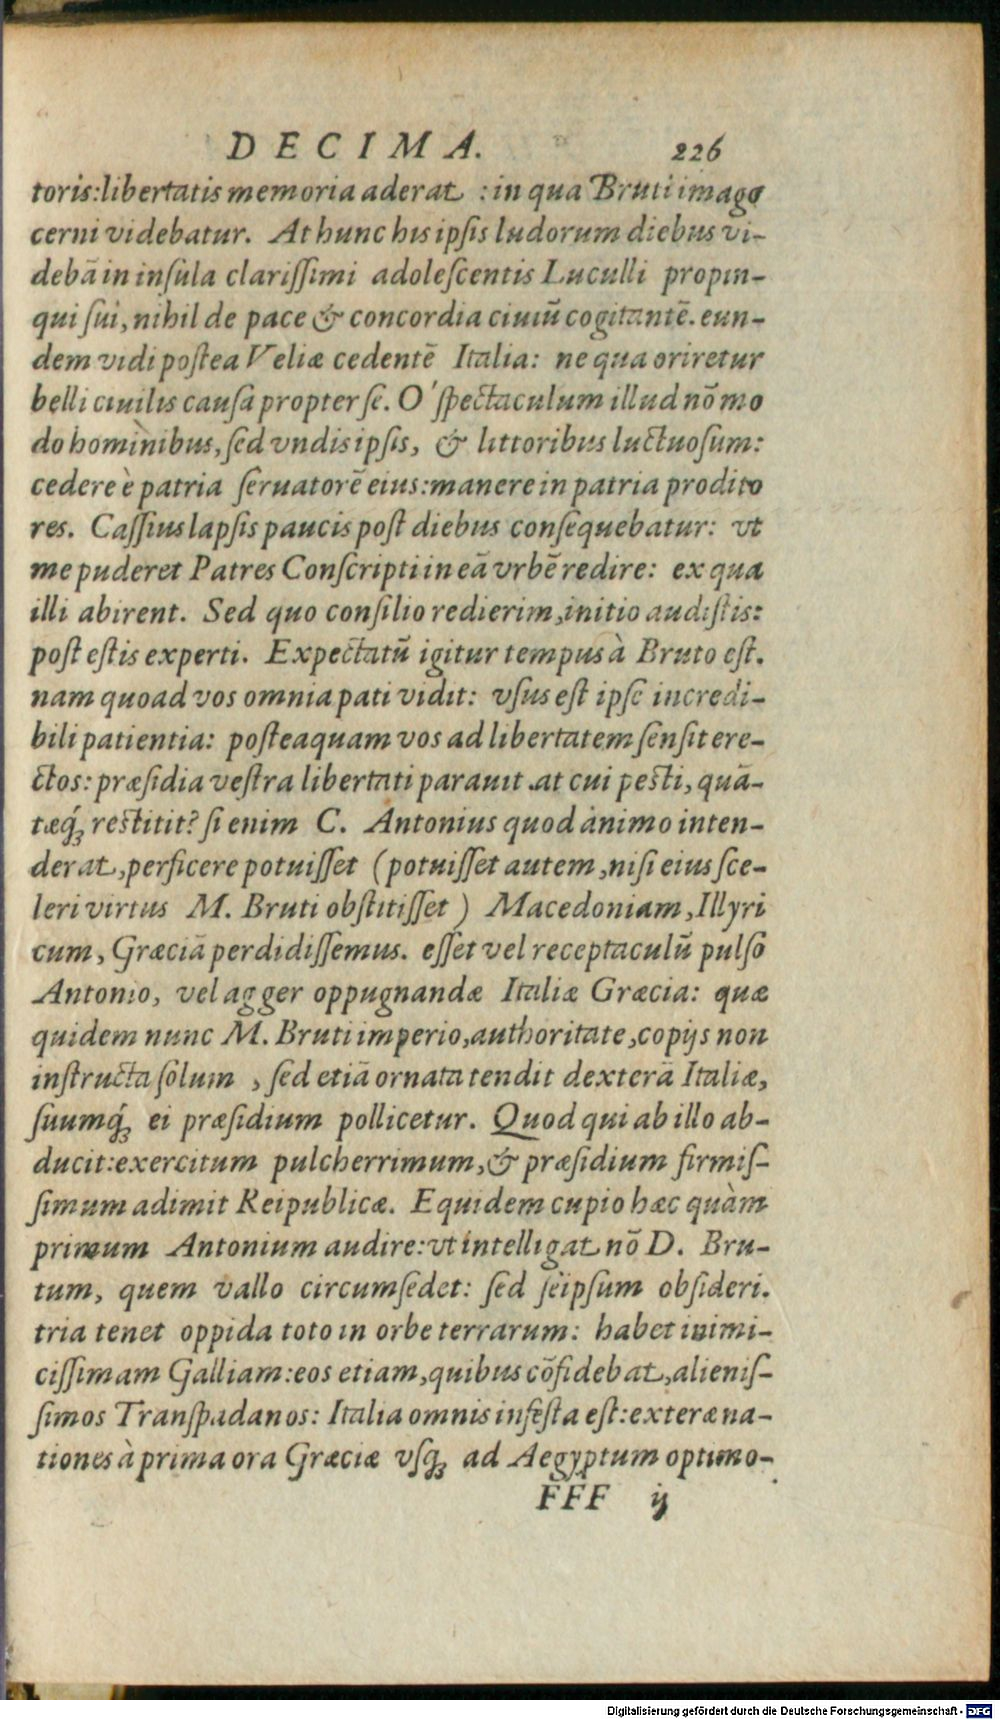 DECIMA. 226
toris: libertatis memoria aderat : in qua Bruti imago
cerni videbatur. At hunc his ipſis ludorum diebus vi-
debā in inſula clariſſimi adoleſcentis Luculli propin-
qui ſui, nihil de pace & concordia ciuiū cogitantē. eun-
dem vidi poſtea Veliæ cedentē Italia: ne qua oriretur
belli ciuilis cauſa propter ſe. O' ſpectaculum illud nō mo
do hominibus, ſed vndis ipſis, & littoribus luctuoſum:
cedere è patria ſeruatorē eius: manere in patria prodito
res. Caſſius lapſis paucis poſt diebus conſequebatur: vt
me puderet Patres Conſcripti in eā vrbē redire: ex qua
illi abirent. Sed quo conſilio redierim, initio audiſtis:
poſt eſtis experti. Expectatū igitur tempus à Bruto eſt.
nam quoad vos omnia pati vidit: vſus eſt ipſe incredi-
bili patientia: poſteaquam vos ad libertatem ſenſit ere-
ctos: præſidia veſtra libertati parauit. at cui peſti, quā-
tæq́; reſtitit? ſi enim C. Antonius quod animo inten-
derat, perficere potuiſſet (potuiſſet autem, niſi eius ſce-
leri virtus M. Bruti obſtitiſſet) Macedoniam, Illyri
cum, Græciā perdidiſſemus. eſſet vel receptaculū pulſo
Antonio, vel agger oppugnandæ Italiæ Græcia: quæ
quidem nunc M. Bruti imperio, authoritate, copijs non
inſtructa ſolum, ſed etiā ornata tendit dexterā Italiæ,
ſuumq́; ei præſidium pollicetur. Quod qui ab illo ab-
ducit: exercitum pulcherrimum, & præſidium firmiſ-
ſimum adimit Reipublicæ. Equidem cupio hæc quàm
primum Antonium audire: vt intelligat nō D. Bru-
tum, quem vallo circumſedet: ſed ſeipſum obſideri.
tria tenet oppida toto in orbe terrarum: habet inimi-
ciſſimam Galliam: eos etiam, quibus cōfidebat, alieniſ-
ſimos Tranſpadanos: Italia omnis infeſta eſt: exteræ na-
tiones à prima ora Græciæ vſq; ad Aegyptum optimo-
FFF ij
Digitalisierung gefördert durch die Deutsche Forschungsgemeinschaft - DFG